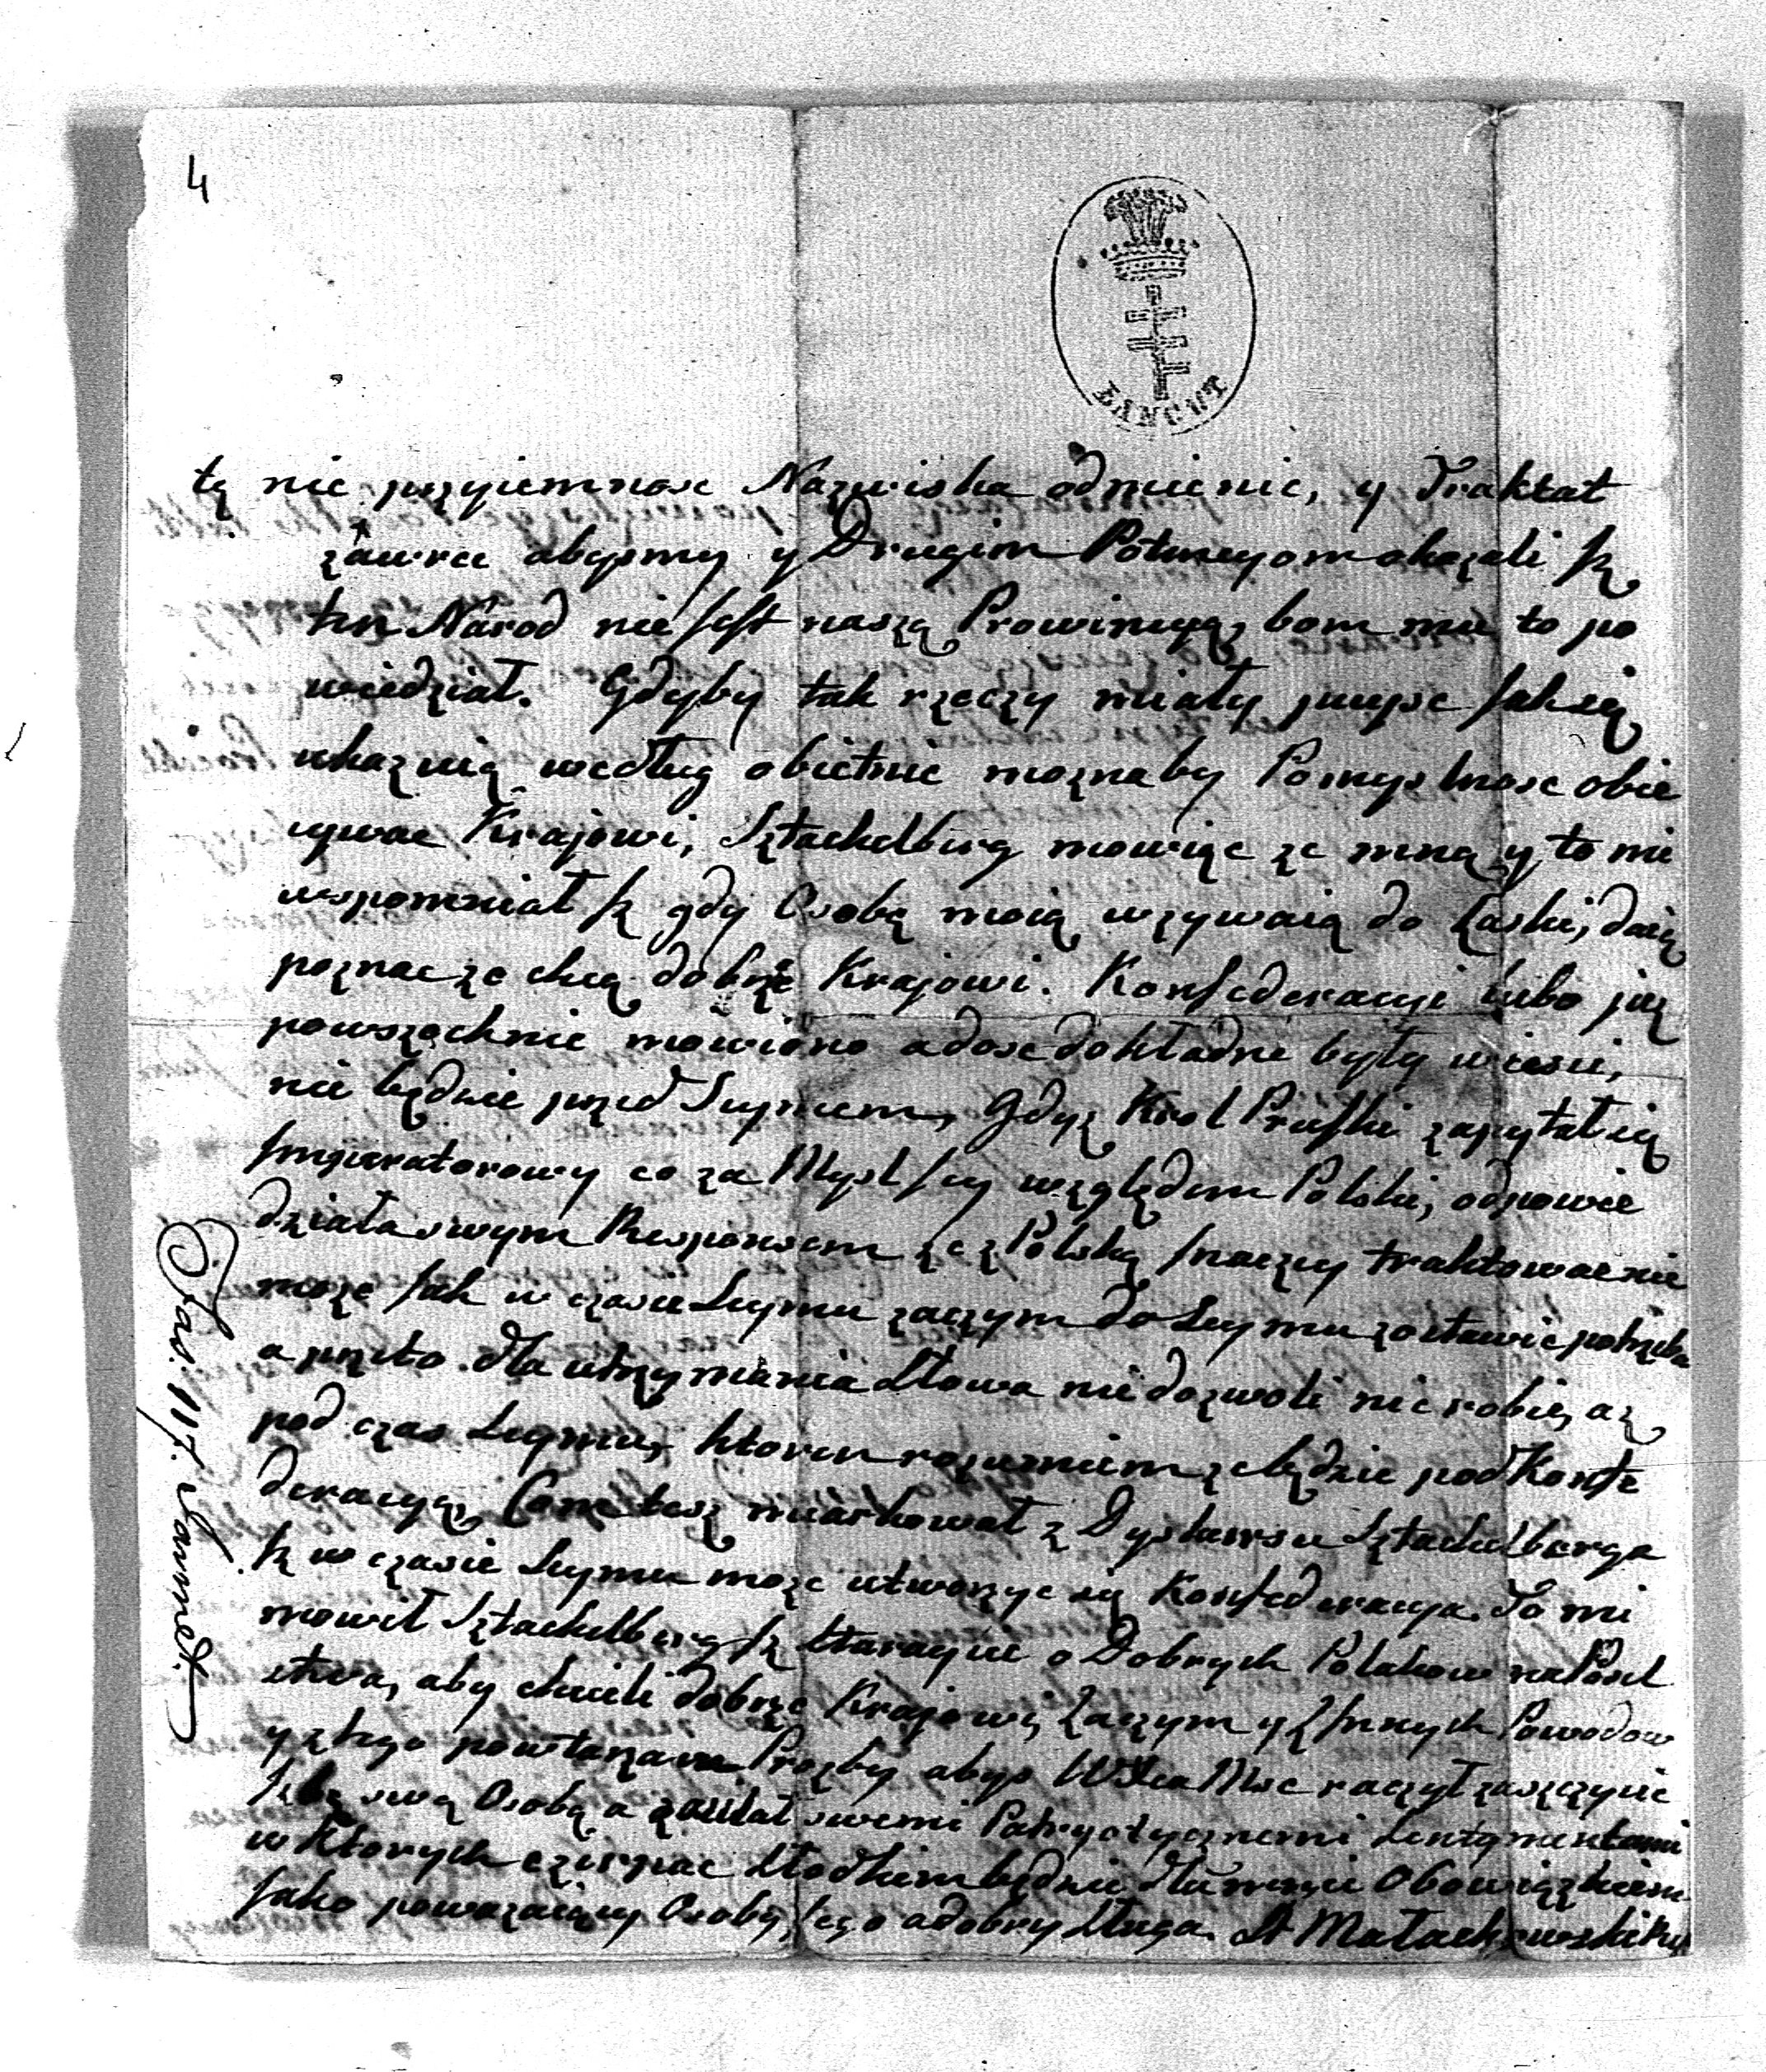 4
ŁANCUT
tę nie przyiemnosc Nazwiska odmienic, y Traktat
zawrzec abysmy y Drugim Potencyom okazali Jż
ten Narod nie Jest naszą Prowincyą, bom mu to po
wiedział. Gdyby tak rzeczy miały pujsc Jak się
ukazuią według obietnic moznaby Pomyslnosc obie
cywac Krajowi, Sztackelberg mowiąc ze mną y to mi
wspomniał Jż gdy Osobę moią wzywaią do Laski, daią
poznac ze chcą dobrze Krajowi. Konfederacyi lubo juz
powszechnie mowiono a dosc dokładne były wiesci,
nie będzie przed Seymem, Gdyz Krol Pruski zapytał się
Imperatorowy co za Mysl Jey względem Polski, odpowie
działa swym Responsem ze z Polską Inaczey traktowac nie
moze Jak w czasie Seymu zaczym do Seymu zostawic potrzeba
a przeto dla utrzymania Słowa nie dozwoli nic robic, az
pod czas Seymu, ktoren rozumiem ze będzie pod Konfe
deracyą, Com tesz miarkował z Dyskursu Sztackelberga
Jż w czasie Seymu moze utworzyc się Konfederacya. To mi
mowił Sztackelberg Jż staraycie o Dobrych Polakow na Posel
stwa, aby chcieli dobrze Krajowi, Zaczym y z Innych Powodow
y z tego powtarzam Prozby abys WXca Msc raczył zaszczycic
Jzbę swą Osobą a zasilał swemi Patryotycznemi Sentymentami
w Ktorych czerpac Słodkim będzie dla mnie Obowiązkiem
Jako powazaiący Osobę Jego a dobry Sługa. St Małachowski